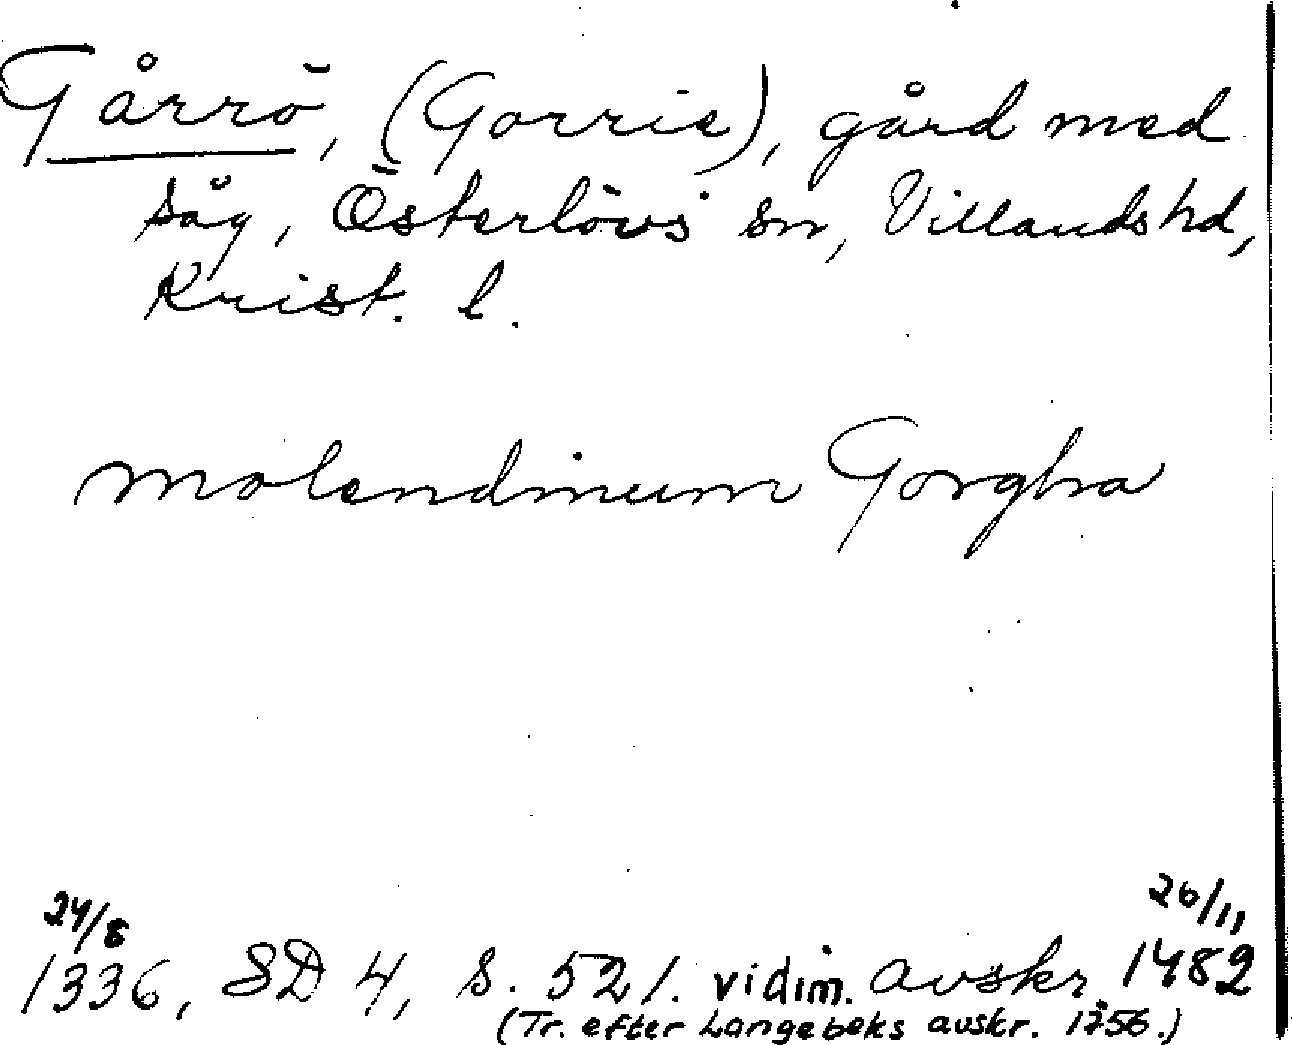 Gårrö, (Gorrie), gård med
såg, Österlövs sn, Villands hd,
Krist. l.
molendinum Gorgha
24/8 26/11
1336, SD 4, s. 521. vidim. avskr. 1482
(Tr. efter Langebeks avskr. 1756.)